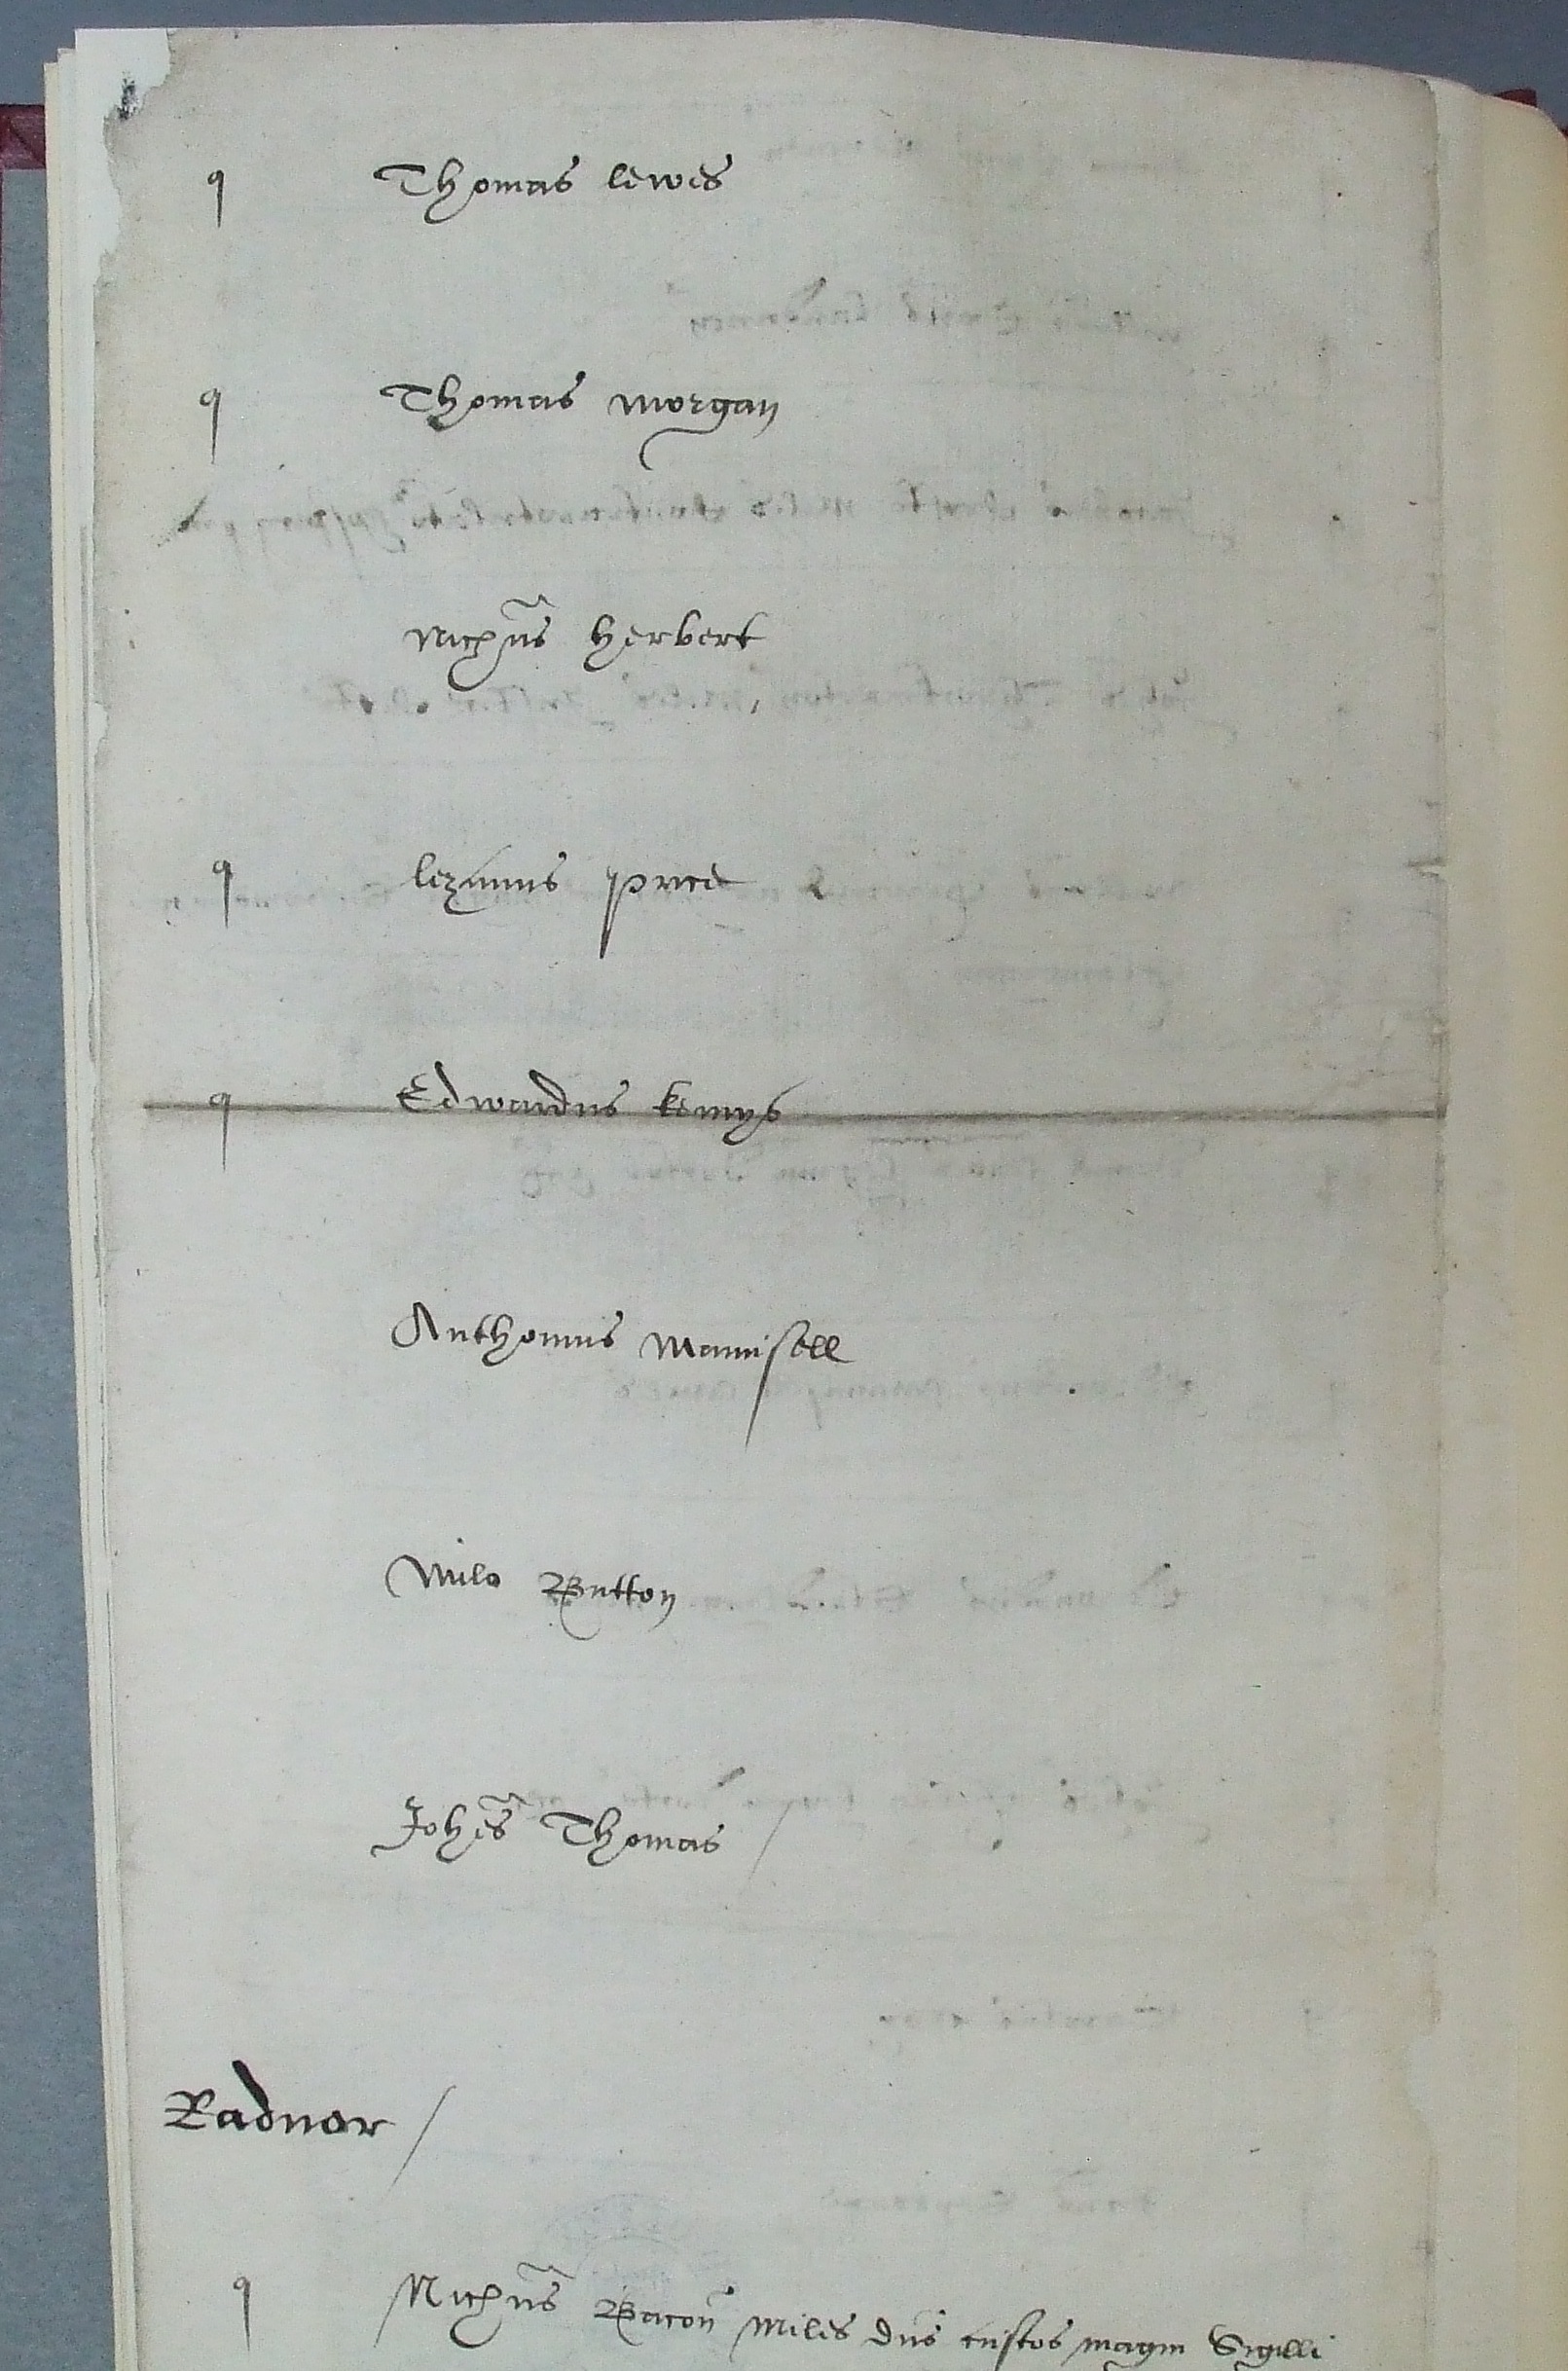 q Thomas lewes
q Thomas morgan
Nichũs herbert
q lezimus price
q Edwardus kemys
Anthonius Mannsell
Milo Button
Johẽs Thomas /
Radnor /
q Nichũs Bacoñ Miles dñs custos magni Sigilli